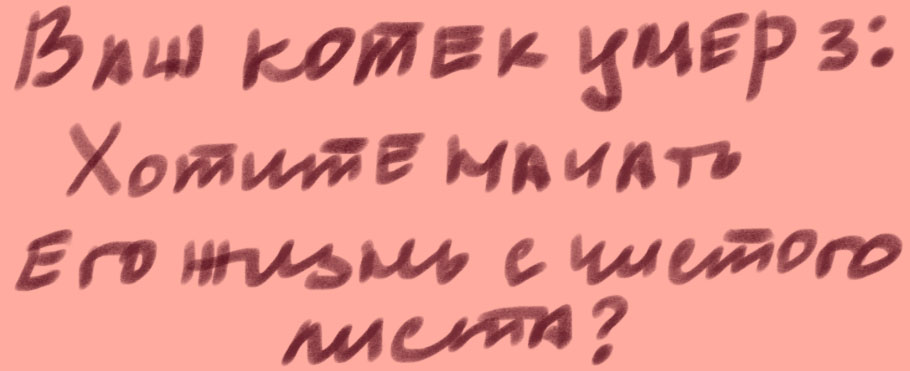 Ваш котек умер з:
Хотите начать
Его жизнь с чистого
листа?